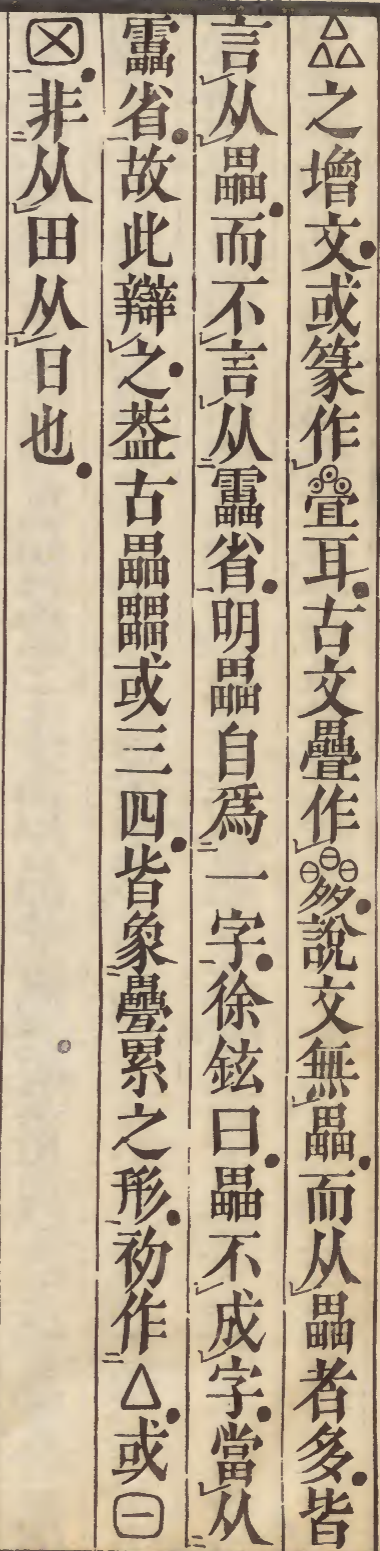 △△△之增文或篆作耳古文疊作說文無畾而从畾者多皆
言从畾而不言从靁省明畾自爲一字徐鉉曰畾不成字當从
靁省故此辯之葢古畾𤳳或三四皆象疊累之形初作△或
非从田从日也